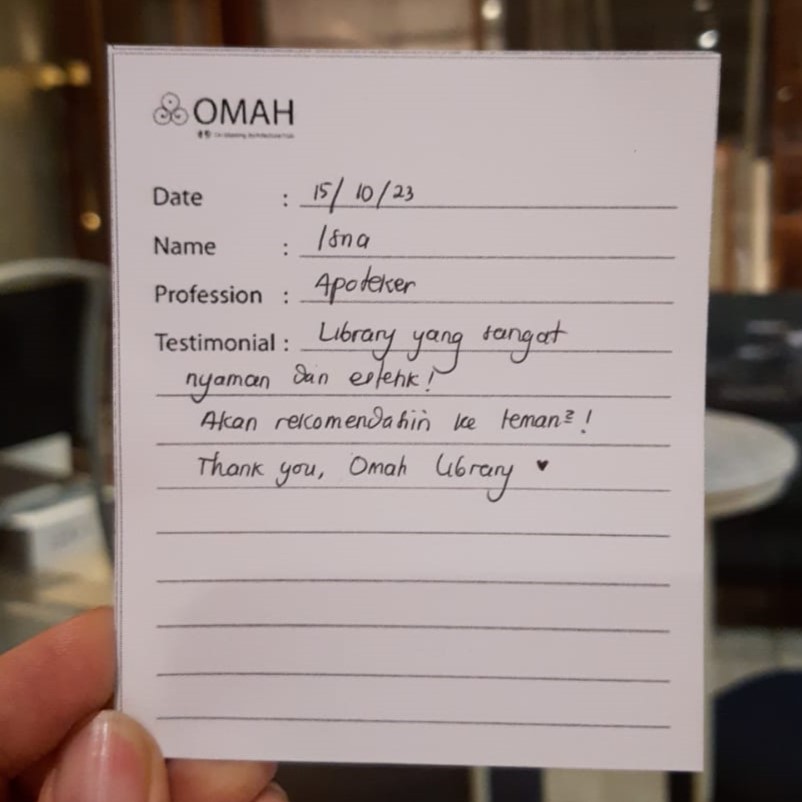 OMAH
Date : 15/10/23
Name : Isna
Profession : Apoteker
Testimonial : Library yang sangat
nyaman dan estetik!
Akan rekomendasiin ke teman²!
Thank you, Omah Library ♥